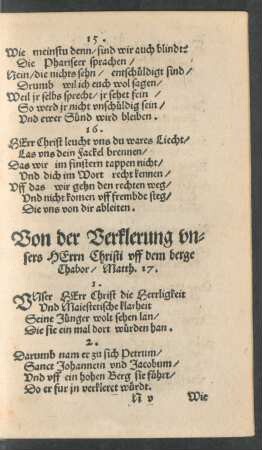 15.
Wie meinstu denn/ sind wir auch blindt?
Die Phariseer sprachen/
Nein/ die nichts sehn/ entschüldigt sind/
Drumb wil ich euch wol sagen/
Weil jr selbs sprecht/ jr sehet fein/
So werd jr nicht vnschüldig sein/
Vnd ewer Sünd wird bleiben.
16.
HErr Christ leucht vns du wares Liecht/
Las vns dein fackel brennen/
Das wir im finstern tappen nicht/
Vnd dich im Wort recht kennen/
Vff das wir gehn den rechten weg/
Vnd nicht komen vff frembde steg/
Die vns von dir ableiten.
Von der Verklerung vn-
sers HErrn Christi vff dem berge
Thabor/ Matth. 17.
1.
VNser HErr Christ die Herrligkeit
Vnd Maiestetische klarheit
Seine Jünger wolt sehen lan/
Die sie ein mal dort würden han.
2.
Darumb nam er zu sich Petrum/
Sanct Johannem vnd Jacobum/
Vnd vff ein hohen Berg sie führt/
Do er für jn verkleret würdt.
N v Wie